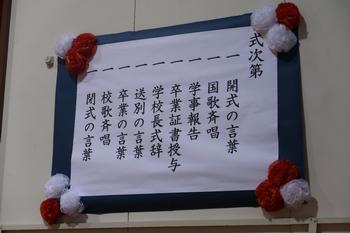 式次第
一 開式の言葉
一 国歌斉唱
一 学事報告
一 卒業証書授与
一 学校長式辞
一 送別の言葉
一 卒業の言葉
一 校歌斉唱
一 閉式の言葉